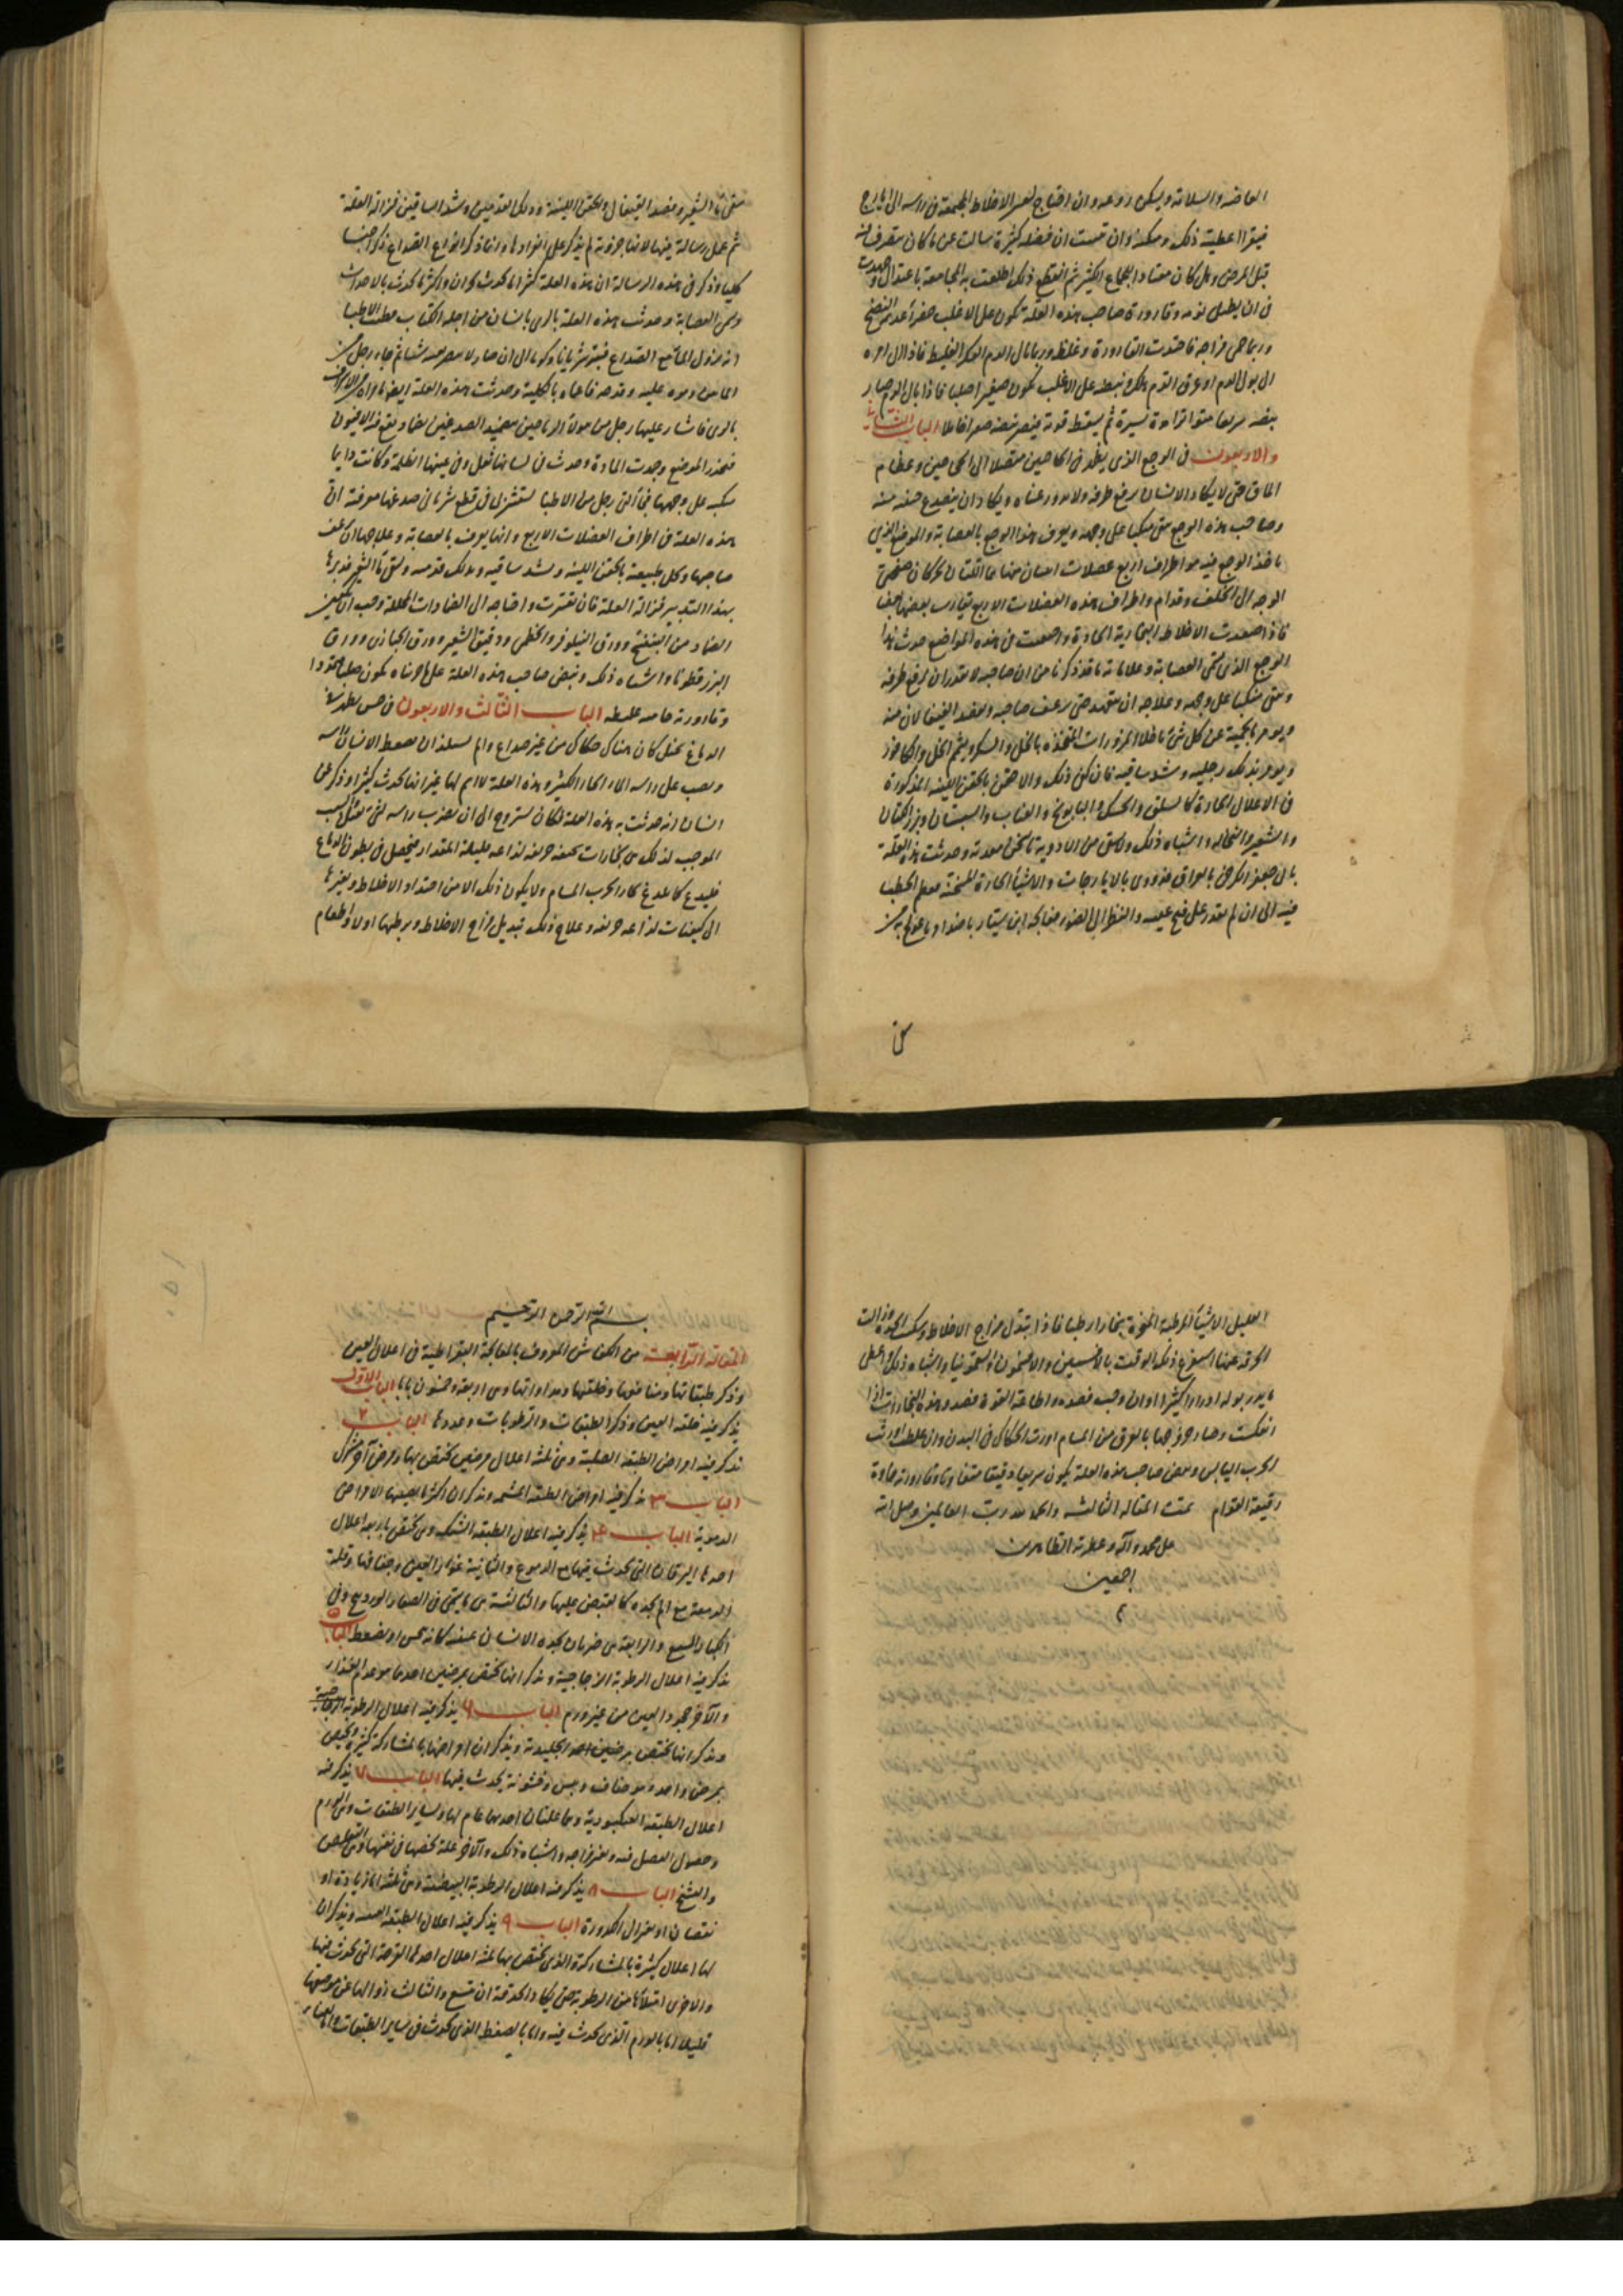 العاضه والسلاته ويسكن روعه وان احتاج لعسر الاخلاط المجتمعة فى راسه الى ايارج
فيقرا اعطيته ذلك ومكنه وان قست ان فضله كثيرة سالت عن ما كان متصرفا فيه
قبل المرض وهل كان معتاد الجماع الكثير ثم انقطع ذلك اطلعت به المجامعة باعتدال
فى ان يطيل نومه وقارورة صاحب هذه العلة تكون على الاغلب صفراء عديمة النضج
وربما حمى مزاجه فاحتدت القارورة وغلظ وربما بال الدم العكر الغليظ فاذا ال امره
الى بول الدم او عرق الدم هلك ونبضه على الاغلب يكون صغيرا صلبا فاذا بال الدم صار
نبضه سريعا متواترا مدة يسيرة ثم يسقط قوته فيصير نبضه صغيرا خاملا الباب الثانى
والاربعون فى الوجع الذى يظهر فى الحاجبين متصلا الى الحاجبين وعظام
الماق حتى لا يكاد الانسان يرفع طرفه ولا يدور عيناه ويكاد ان ينصدع جفنه منه
وصاحب هذه الوجع يبقى منكبا على وجهه ويعرف هذا الوجع بالعصابة والموضع الذى
ياخذ الوجع فيه هو اطراف اربع عضلات اثنتان منها ما اللتان تحركان جلدة
الوجه الى الخلف وقدام واطراف هذه العضلات الاربع يتقارب بعضها بعضا
فاذا صعدت الاخلاط البخارية الحادة واجتمعت فى هذه المواضع حدث هذا
الوجع الذى يسمى العصابة وعلاماته ما قد ذكرنا من ان صاحبه لا يقدر ان يرفع طرفه
ويبقى منكبا على وجهه وعلاجه ان يتعهد حتى يرعف صاحبه ويفصد القيفالان منه
ويومر بالحمية عن كل شئ ما خلا المزورات المتخذه بالخل والسكر ويشم الخل والكافور
ويومر بدلك رجليه وشد ساقيه فان كفى ذلك والا حقن بالحقن اللينة المذكورة
فى الاعلال الحادة كالسلق والحسك والبابونج والعناب والسبستان وبزر الكتان
والشعير والنخالة واشباه ذلك ولا يسقى من الادوية ما يسخن معدته وحدثت هذه العلة
بابى جعفر الكرخى بالعراق فدووى بالايارجات والاشياء الحارة المسخنة فعظم الخطب
فيه الى ان لم يقدر على فتح عينيه والنظر الى الضوء فعالجه ابن سيار بضد ما عولج به من
سقى
سقى ماء الشعير وفصد القيفال والحقن اللينة ودلك القدمين وشد الساقين فزالت العلة
ثم عمل رسالة فيها لانها جزوية لم يذكر على انفرادها وانما ذكر انواع الصداع ذكرا جنسيا
كليا وذكر فى هذه الرسالة ان هذه العلة كثيرا ما تحدث بحران واكثر ما يحدث بالاحداث
وهى العصابة وحدثت هذه العلة بالرى بانسان من اجلة الكتاب فظنت الاطبا
انه نزول الماء مع الصداع فبتر شريانا وكويا الى ان صار لا يبصر منه شيا ثم جاء رجل من
بالرى فاشار عليها رجل من مولاة الرياحين بتضميد الصدغين بضماد يقع فيه الافيون
فتخدر الموضع وجمدت المادة وحدث فى لسانها ثقل وفى عينيها الظلمة وكانت دايما
منكبة على وجهها فتاتى رجل من الاطبا ليستشيرنى فى قطع شريانى صدغيها فعرفته ان
هذه العلة فى اطراف العضلات الاربع وانها يعرف بالعصابة وعلاجها ان يرعف
صاحبها ويحل طبيعته بالحقن اللينة ويشد ساقيه ويدلك قدميه ويسقى ماء الشعير فدبرها
بهذا التدبير فزالت العلة فان تعسرت واحتاجت الى الضمادات المحللة وجب ان يكون
الضماد من البنفسج وورق النيلوفر والخطمى ودقيق الشعير وورق الخبازى وورق
البزر قطونا واشباه ذلك ونبض صاحب هذه العلة على ما جربناه يكون صلبا ممتدا
وقارورته غليظة الباب الثالث والاربعون فى حس يظهر فى
الدماغ يخيل كان هناك حكاك من غير صداع والم يستلذ ان يضغط الانسان راسه
ويصب على راسه الماء الحار الكثير وهذه العلة لا اسم لها غير انها تحدث كثيرا وذكر لى
انسان انه حدثت به هذه العلة فكان يستروح الى ان يضرب راسه لشئ ثقيل السبب
الموجب لذلك هى بخارات حريفة لذاعة قليلة المقدار يتحصل فى بطون الدماغ
فيلدغ كما يلدغ بخار الجرب المسام ولا يكون ذلك الا من احتداد الاخلاط وتغيرها
الى كيفيات لذاعة حريفة وعلاج ذلك تبديل مزاج الاخلاط وترطيبها اولا واطعام
العليل الاشياء الرطبة المبخرة بخارا رطبا فاذا تبدل مزاج الاخلاط وسكنت الحدة وزالت
الحرقة عنها استفرغ ذلك الوقت بالافسنتين والافتيمون والسقمونيا واشباه ذلك واعطى
ما يدر بوله ادرارا كثيرا وان وجب فصده واطاعت القوة فصد وهذه البخارات اذا
انعكست وصار خروجها بالعرق من المسام اورث الحكاك فى البدن وان غلظت اورثت
الجرب اليابس ونبض صاحب هذه العلة يكون سريعا دقيقا متفاوتا وقارورته حادة
رقيقة القوام تمت المقالة الثالثة والحمد لله رب العالمين وصلى الله
على محمد وآله وعترته الطاهرين
اجمعين
بسم الله الرحمن الرحيم
المقالة الرابعة من الكناش المعروف بالمعالجة البقراطية فى اعلال العين
وذكر طبقاتها ومنافعها وخلقتها ومداواتها وهى اربعة وخمسون بابا الباب الاول
يذكر فيه خلقة العين وذكر الطبقات والرطوبات وعددها الباب ٢
يذكر فيه امراض الطبقة الصلبة وهى ثلثة اعلال مرضين تختص بها ومرض آخر مشترك
الباب ٣ يذكر فيه امراض الطبقة المشيمية ويذكر ان اكثر ما يصيبها الامراض
الدموية الباب ٤ يذكر فيه اعلال الطبقة الشبكية وهى تختص باربعة اعلال
احدها اليرقان التى تحدث فيها مع الدموع والثانية غور العين وجفافها وقلة
الدمعة مع الم يجده كما يقبض عليها والثالثة هى ما يسمى فى الصغار الوردينج وفى
الكبار السبع والرابعة هى ضربان يجده الانسان فى عينه كانه نخس او يضغط الباب ٥
يذكر فيه اعلال الرطوبة الزجاجية ويذكر انها تختص بمرضين احدهما هو عدم الغذاء
والآخر جحود العين من غير ورم الباب ٦ يذكر فيه اعلال الرطوبة الزجاجية
ويذكر انها تختص بمرضين احد الجليدية ويذكر ان امراضها بالمشاركة كثيرة وتختص
بمرض واحد وهو جفاف ويبس وخشونة يحدث فيها الباب ٧ يذكر فيه
اعلال الطبقة العنكبوتية وهما علتان احديهما عام لها ولساير الطبقات وهى الورم
وحصول الفضل فيه وتغير مزاجه واشباه ذلك والآخر علة تخصها فى نفسها وهى التقلص
والتشنج الباب ٨ يذكر فيه اعلال الرطوبة البيضية وهى ثلثة اما زيادة او
نقصان او تغير الى الكدورة الباب ٩ يذكر فيه اعلال الطبقة العنبية ويذكر ان
لها اعلال كثيرة بالمشاركة والذى تختص بها ثلثة اعلال احدها القرحة التى تحدث فيها
والاخرى امتلاءها من الرطوبة حتى يكاد الحدقة ان تتسع والثالث زوالها عن موضعها
قليلا اما بالورم الذى يحدث فيه واما بالضغط الذى يحدث فى ساير الطبقات واما